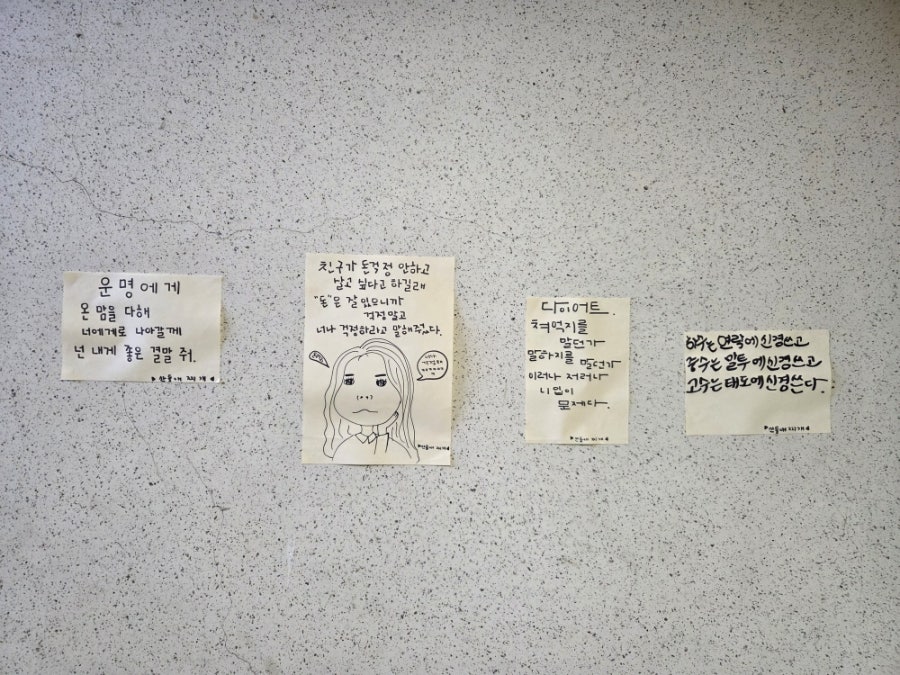 운명에게
온 맘을 다해
너에게로 나아갈게
넌 내게 좋은 결말 줘.
친구가 돈걱정 안하고
살고 싶다고 하길래
"돈"은 잘 있으니까
걱정말고
너나 걱정하라고 말해줬다.
다이어트.
쳐먹지를
말던가
말하지를 말던가
이러나 저러나
니 입이
문제다.
하수는 연락에 신경쓰고
중수는 말투에 신경쓰고
고수는 태도에 신경쓴다.